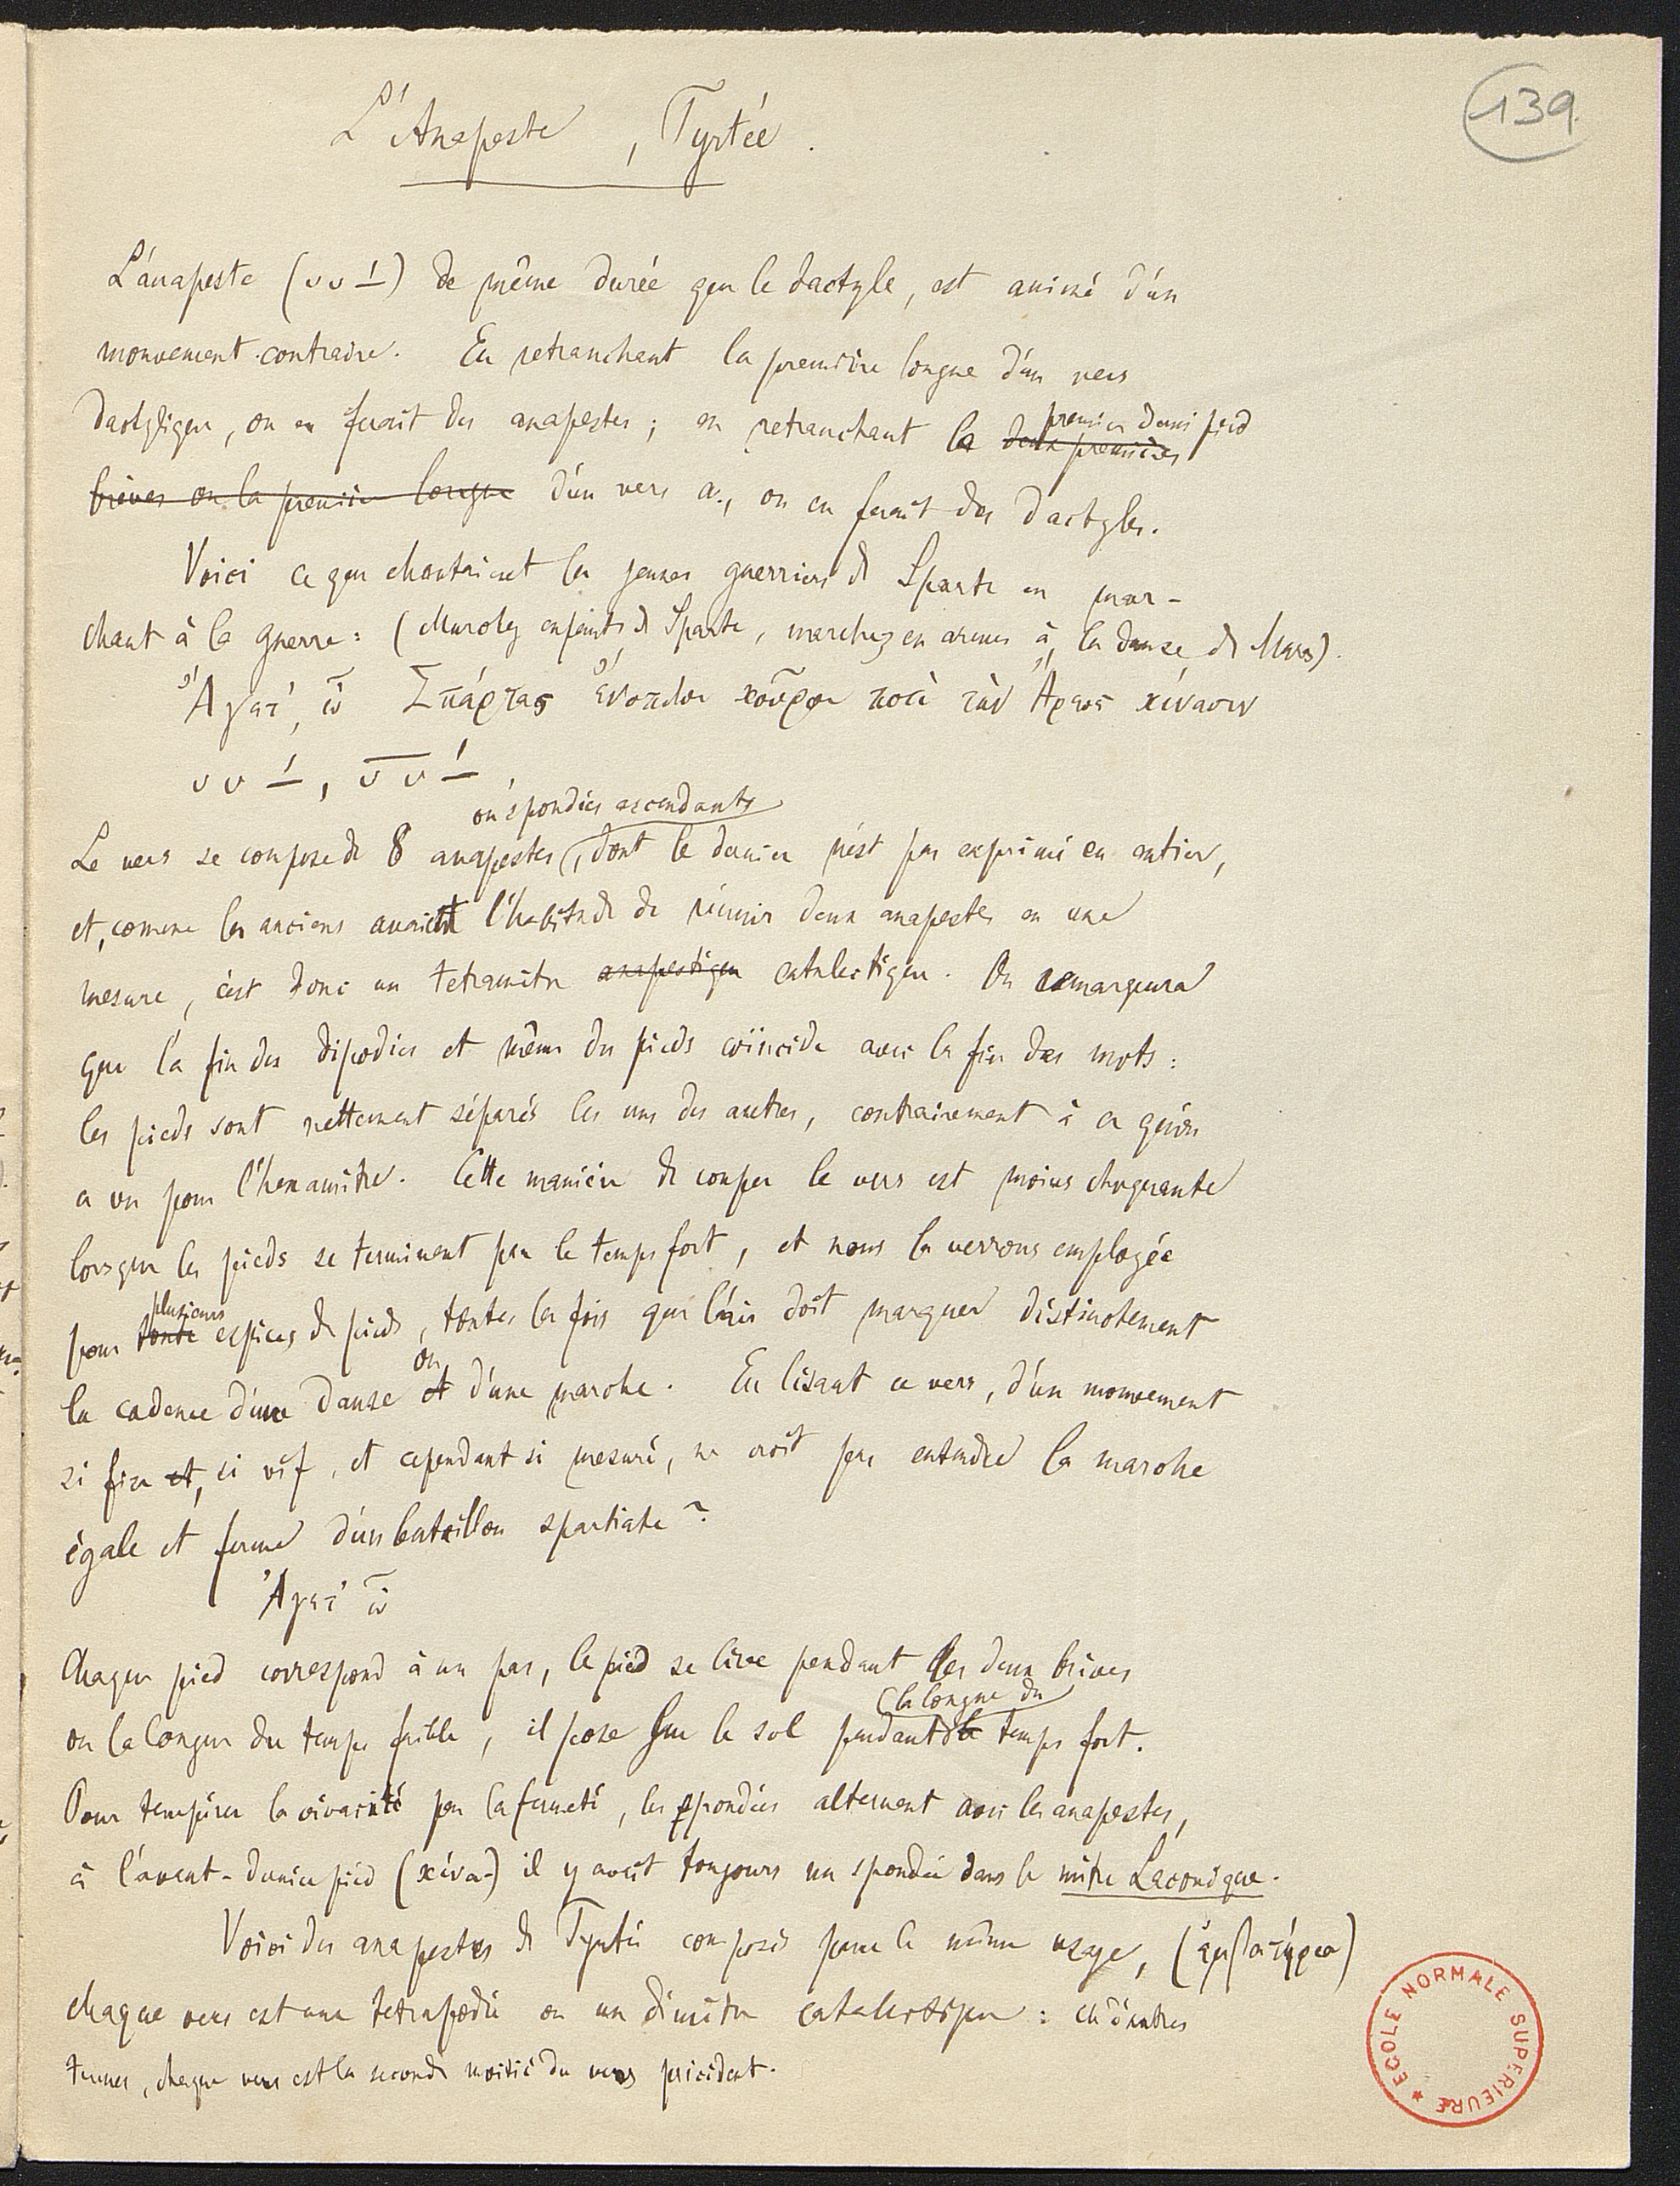 139
L'Anapeste, Tyrtée.
L'anapeste (υυ–́) de même durée que le dactyle, est animé d'un
mouvement contraire. En retranchant la première longue d'un vers
dactylique, on en ferait des anapestes; en retranchant le deux premières
premier demi pied
brèves ou la première longue d'un vers a., on en ferait des dactyles.
Voici ce que chantaient les jeunes guerriers de Sparte en mar-
chant à la guerre: (Marchez enfants de Sparte, marchez en armes à la danse de Mars).
Ἄγετ', ὦ Σπάρτας ἔνοπλοι κοῦροι ποτὶ τὰν Ἄρεως κίνασιν
υυ–́, υ̅υ̅–́,
ou spondées ascendants
Le vers se compose de 8 anapestes, dont le dernier n'est pas exprimé en entier,
et, comme les anciens avaient l'habitude de réunir deux anapestes en une
mesure, c'est donc un tetramètre anapestique catalectique. On remarquera
que la fin des dipodies et même des pieds coïncide avec la fin des mots:
les pieds sont nettement séparés les uns des autres, contrairement à ce qu'on
a vu pour l'hexamètre. Cette manière de couper le vers est moins choquante
lorsque les pieds se terminent par le temps fort, et nous la verrons employée
plusieurs
pour toute espèces de pieds, toutes les fois que l'air doit marquer distinctement
ou
la cadence d'une danse et d'une marche. En lisant ce vers, d'un mouvement
si fier et, si vif, et cependant si mesuré, ne croit pas entendre la marche
égale et ferme d'un bataillon spartiate?
Ἄγετ' ὦ
Chaque pied correspond à un pas, le pied se lève pendant les deux brèves
la longue du
ou la longue du temps faible, il pose sur le sol pendant le temps fort.
Pour tempérer la vivacité par la fermeté, les spondées alternent avec les anapestes,
à l'avant-dernier pied (κίνα-) il y avait toujours un spondée dans le mètre Laconique.
Voici des anapestes de Tyrtée composés pour le même usage, (ἐμβατήρια)
chaque vers est une tetrapodie ou un dimètre catalectique: en d'autres
termes, chaque vers est la seconde moitié du vers précédent.
ECOLE NORMALE SUPERIEURE